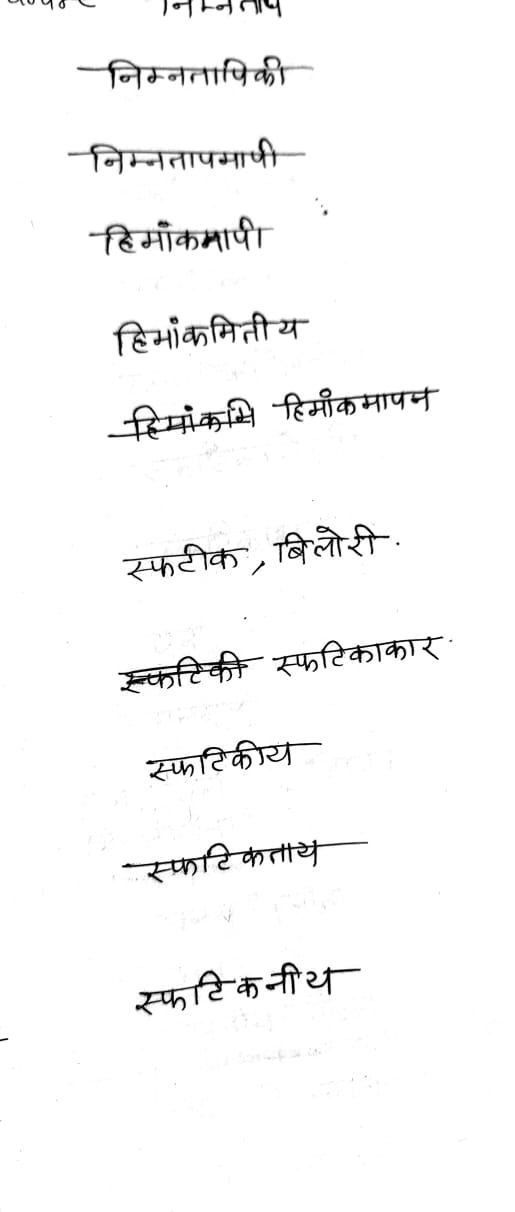 निम्नताप
निम्नतापिकी
निम्नतापमापी
हिमांकमापी
हिमांकमितीय
हिमांकमि हिमांकमापन
स्फटीक, बिलोरी.
स्फटिकी स्फटिकाकार.
स्फाटिकीय
स्फाटिकताय
स्फाटिकनीय